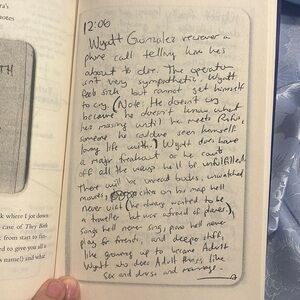 ra's
notes
TH
12:06
Wyatt Gonzalez receives a
phone call telling him he's
about to die. The operator
isn't very sympathetic. Wyatt
feels sick but cannot get himself
to cry. (Note: He doesn't cry
because he doesn't know what
he's missing until he meets Rufus,
someone he could've seen himself
loving life with.) Wyatt does have
a major freakout as he counts
off all the ways he'll be unfulfilled.
There will be unread books, unwatched
movies, cities on his map he'll
never visit (he always wanted to be
a traveller but was afraid of planes),
songs he'll never sing, piano he'll never
play for friends, and deeper stuff,
like growing up to become Adult
Wyatt who does Adult things like
sex and divorce and marriage.
k where I jot down
case of They Both
from start to fin-
ed to give you all a
name!) and what